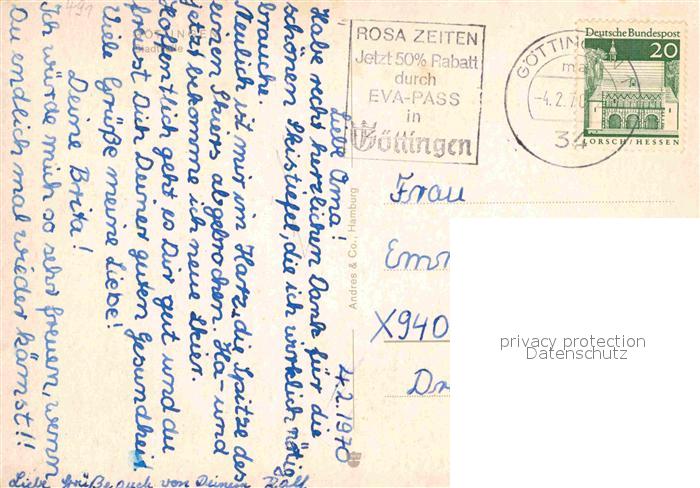 491
GÖTTINGEN
Stadthalle
Liebe Oma! 4.2.1970
Habe recht herzlichen Dank für die
schönen Skistiefel, die ich wirklich nötig
brauche.
Neulich ist mir im Harz die Spitze des
einen Skiers abgebrochen. Ha- und
jetzt bekomme ich neue Skier.
Hoffentlich geht es Dir gut und du
freust Dich Deiner guten Gesundheit.
Viele Grüße meine Liebe!
Deine Brita!
Ich würde mich so sehr freuen, wenn
Du endlich mal wieder kämst!!
Liebe Grüße auch von Deinem Ralf
Andres & Co., Hamburg
ROSA ZEITEN
Jetzt 50% Rabatt
durch
EVA-PASS
in
Göttingen
GÖTTINGEN
-4.2.70
34
Deutsche Bundespost
20
LORSCH/HESSEN
Frau
X940
privacy protection
Datenschutz